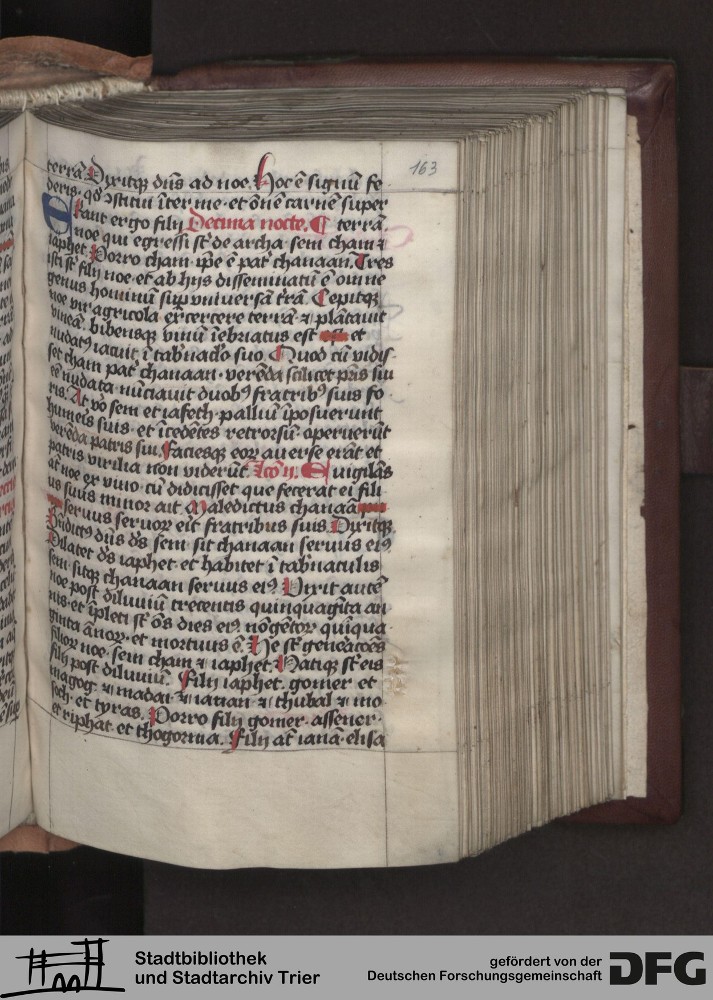 163
terrā Dixitqꝫ dn̄s ad noe. Hoc ē signū fe
deris. qd̕ ꝯstitui īter me et ōnē carnē super
Erant ergo filij Decima nocte. terrā.
noe qui egressi st̄ de archa sem cham ⁊
iaphet. Porro cham ip̄e ē pat̕ chanaan. Tres
isti st̄ filij noe et ab hijs disseminatū ē omne
genus hominū sup̱ vniuersā t̄rā. Cepitqꝫ
noe vir agricola exercere terrā ⁊ plātauit
vineā. bibensqꝫ vinū īebriatus est et
nudatꝰ iacuit ī tab̕naclo suo Quod cū vidis
set cham pat̕ chanaan. verēda scilicet pr̄is sui
eē nudata nūciauit duobꝰ fratribꝰ suis fo
ris. At v̊o sem et iafeth palliū īposuerunt
humeis suis et īcedētes retrorsū. operuerūt
verēda patris sui. Faciesqꝫ eoꝝ auerse erāt et
patris virilia non viderūt. Euigilās
at̄ noe ex vino cū didicisset que fecerat ei fili
us suus minor ait Maledictus chanaā
seruus seruoꝝ eit fratribus suis. Dixitqꝫ
Bn̄dictꝰ dn̄s d̄s sem sit chanaan seruus eiꝰ
Dilatet d̄s iaphet et habitet ī tab̕naculis
sem sitqꝫ chanaan seruus eiꝰ Vixit autē
noe post diluuiū trecentis quinquagīta an
nis. et īpleti st̄ ōs dies eiꝰ nōgētoꝝ quīqua
ginta ānoꝝ. et mortuus ē. He st̄ gen̄eacōēs
filioꝝ noe. sem cham ⁊ iaphet. Natiqꝫ st̄ eis
filij post diluuiū. Filij iaphet. gomer et
magog. ⁊ madai ⁊ iauan ⁊ thubal ⁊ mo
soch. et tyras. Porro filij gomer. assener.
et riphat. et thogorma. Filij at̄ iauā. elisa
Stadtbibliothek
und Stadtarchiv Trier
gefördert von der
Deutschen Forschungsgemeinschaft DFG